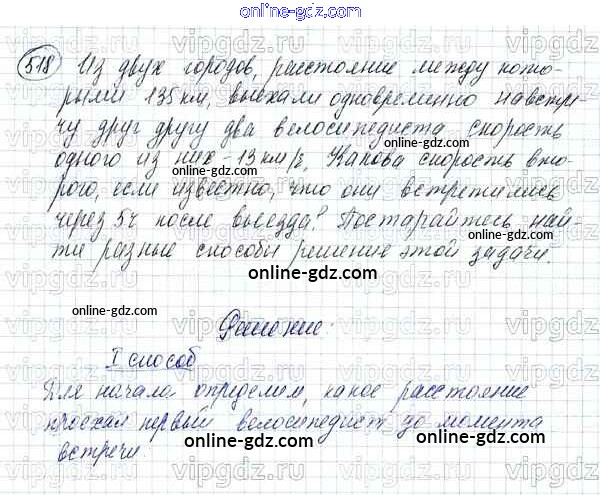 online-gdz.com
518 Из двух городов, расстояние между кото-
рыми 135 км, выехали одновременно навстре-
чу друг другу два велосипедиста скорость
одного из них - 13 км/ч, Какова скорость вто-
рого, если известно, что они встретились
через 5ч после выезда? Постарайтесь най-
ти разные способы решение этой задачи.
online-gdz.com
online-gdz.com
Решение:
I способ
online-gdz.com
Для начала определим, какое расстояние
проехал первый велосипедист до момента
встречи.
online-gdz.com
online-gdz.com